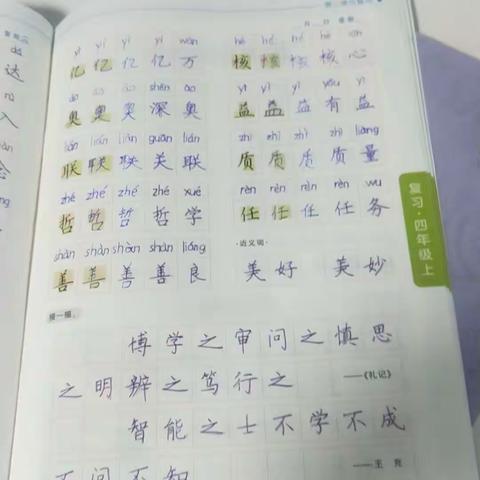 yì yì yì yì wàn
亿 亿 亿 亿 万
ào ào ào shēn ào
奥 奥 奥 深 奥
lián lián lián guān lián
联 联 联 关 联
zhé zhé zhé zhé xué
哲 哲 哲 哲 学
shàn shàn shàn shàn liáng
善 善 善 善 良
hé hé hé hé xīn
核 核 核 核 心
yì yì yì yǒu yì
益 益 益 有 益
zhì zhì zhì zhì liàng
质 质 质 质 量
rèn rèn rèn rèn wu
任 任 任 任 务
·近义词·
美 好 美 妙
描一描。
博学之审问之慎思
之明辨之笃行之
——《礼记》
智能之士不学不成
不问不知
——王充
复习·四年级上
达
入